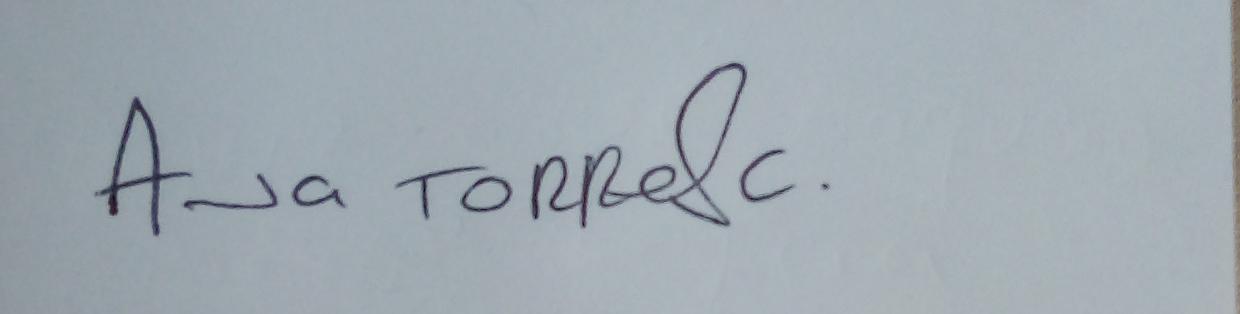 Ana TORRes C.